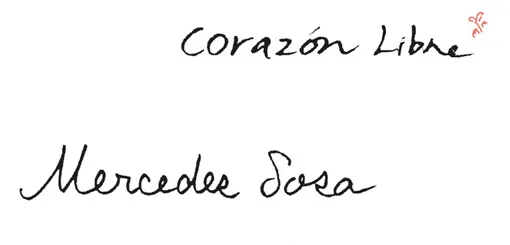 Corazón Libre
Mercedes Sosa